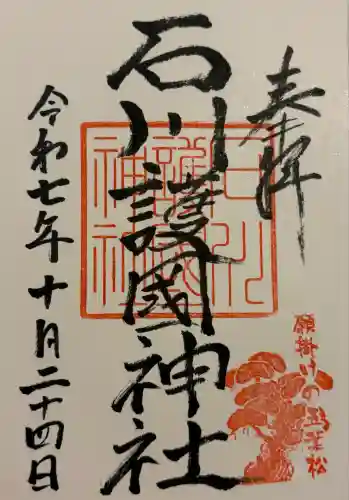 奉拝
石川護國神社
令和七年十月二十四日
石川護國神社
願掛けの
松